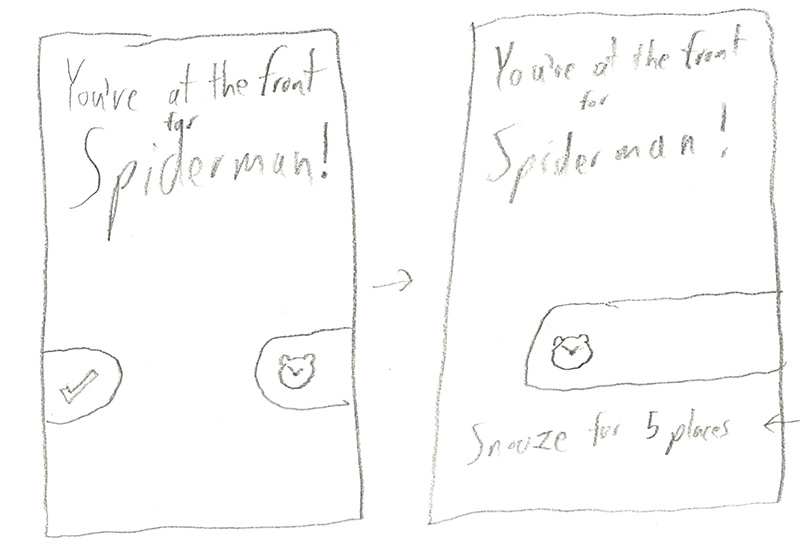 You're at the front
for
Spiderman!
You're at the front
for
Spiderman!
Snooze for 5 places